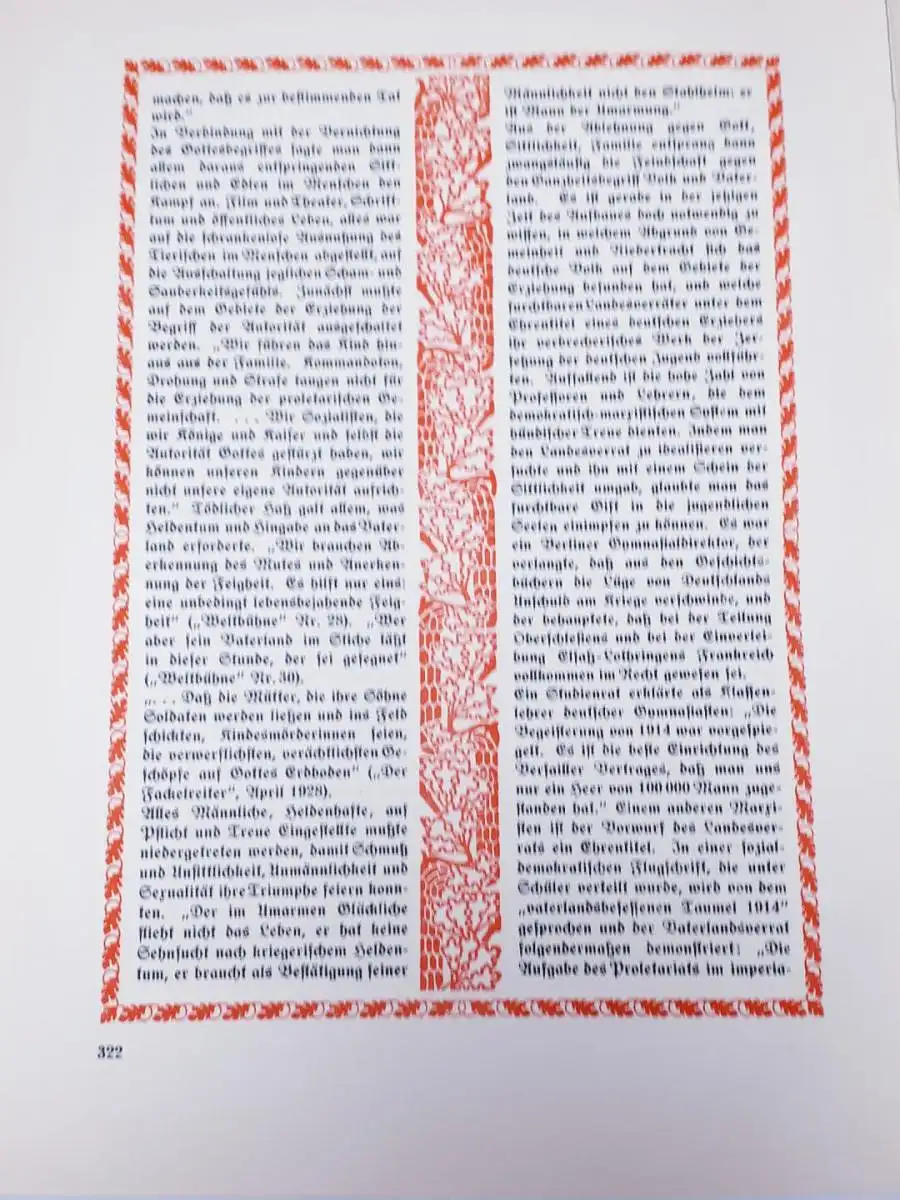 machen, daß es zur bestimmenden Tat
wird.“
In Verbindung mit der Vernichtung
des Gottesbegriffes sagte man dann
allem daraus entspringenden Sitt-
lichen und Edlen im Menschen den
Kampf an. Film und Theater, Schrift-
tum und öffentliches Leben, alles war
auf die schrankenlose Ausnutzung des
Tierischen im Menschen abgestellt, auf
die Ausschaltung jeglichen Scham- und
Sauberkeitsgefühls. Zunächst mußte
auf dem Gebiete der Erziehung der
Begriff der Autorität ausgeschaltet
werden. „Wir führen das Kind hin-
aus aus der Familie. Kommandoton,
Drohung und Strafe taugen nicht für
die Erziehung der proletarischen Ge-
meinschaft. ... Wir Sozialisten, die
wir Könige und Kaiser und selbst die
Autorität Gottes gestürzt haben, wir
können unseren Kindern gegenüber
nicht unsere eigene Autorität aufrich-
ten.“ Tödlicher Haß galt allem, was
Heldentum und Hingabe an das Vater-
land erforderte. „Wir brauchen Ab-
erkennung des Mutes und Anerken-
nung der Feigheit. Es hilft nur eins:
eine unbedingt lebensbejahende Feig-
heit“ („Weltbühne“ Nr. 28). „Wer
aber sein Vaterland im Stiche läßt
in dieser Stunde, der sei gesegnet“
(„Weltbühne“ Nr. 30).
„... Daß die Mütter, die ihre Söhne
Soldaten werden ließen und ins Feld
schickten, Kindesmörderinnen seien,
die verwerflichsten, verächtlichsten Ge-
schöpfe auf Gottes Erdboden“ („Der
Fackelreiter“, April 1928).
Alles Männliche, Heldenhafte, auf
Pflicht und Treue Eingestellte mußte
niedergetreten werden, damit Schmutz
und Unsittlichkeit, Unmännlichkeit und
Sexualität ihre Triumphe feiern konn-
ten. „Der im Umarmen Glückliche
flieht nicht das Leben, er hat keine
Sehnsucht nach kriegerischem Helden-
tum, er braucht als Bestätigung seiner
Männlichkeit nicht den Stahlhelm: er
ist Mann der Umarmung.“
Aus der Ablehnung gegen Gott,
Sittlichkeit, Familie entsprang dann
zwangsläufig die Feindschaft gegen
den Ganzheitsbegriff Volk und Vater-
land. Es ist gerade in der jetzigen
Zeit des Aufbaues doch notwendig zu
wissen, in welchem Abgrund von Ge-
meinheit und Niedertracht sich das
deutsche Volk auf dem Gebiete der
Erziehung befunden hat, und welche
furchtbaren Landesverräter unter dem
Ehrentitel eines deutschen Erziehers
ihr verbrecherisches Werk der Zer-
setzung der deutschen Jugend vollführ-
ten. Auffallend ist die hohe Zahl von
Professoren und Lehrern, die dem
demokratisch-marxistischen System mit
hündischer Treue dienten. Indem man
den Landesverrat zu idealisieren ver-
suchte und ihn mit einem Schein der
Sittlichkeit umgab, glaubte man das
furchtbare Gift in die jugendlichen
Seelen einimpfen zu können. Es war
ein Berliner Gymnasialdirektor, der
verlangte, daß aus den Geschichts-
büchern die Lüge von Deutschlands
Unschuld am Kriege verschwinde, und
der behauptete, daß bei der Teilung
Oberschlesiens und bei der Einverlei-
bung Elsaß-Lothringens Frankreich
vollkommen im Recht gewesen sei.
Ein Studienrat erklärte als Klassen-
lehrer deutscher Gymnasiasten: „Die
Begeisterung von 1914 war vorgespie-
gelt. Es ist die beste Einrichtung des
Versailler Vertrages, daß man uns
nur ein Heer von 100000 Mann zuge-
standen hat.“ Einem anderen Marxi-
sten ist der Vorwurf des Landesver-
rats ein Ehrentitel. In einer sozial-
demokratischen Flugschrift, die unter
Schüler verteilt wurde, wird von dem
„vaterlandsbesessenen Taumel 1914“
gesprochen und der Vaterlandsverrat
folgendermaßen demonstriert: „Die
Aufgabe des Proletariats im imperia-
322